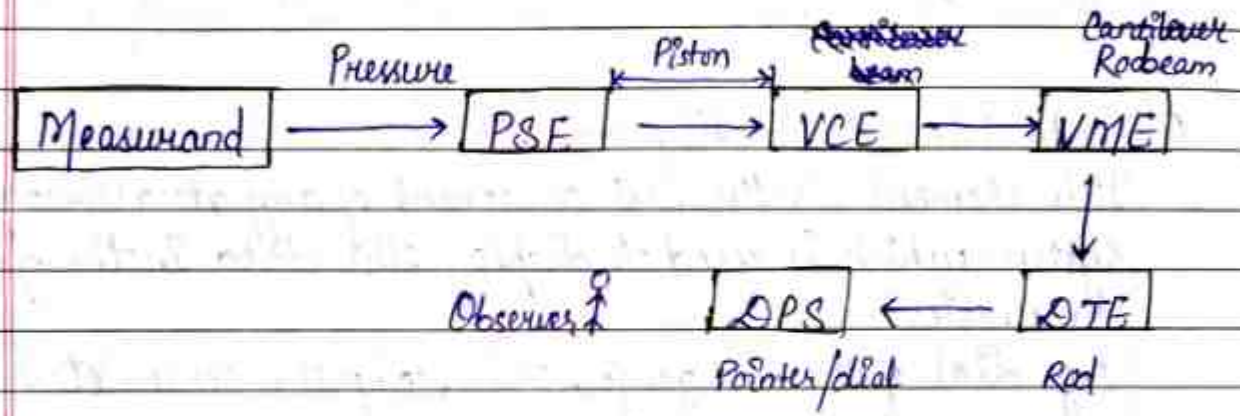 Pressure
Piston
beam
Cantilever
Rodbeam
Measurand
PSE
VCE
VME
Observer
DPS
DTE
Pointer/dial
Rod